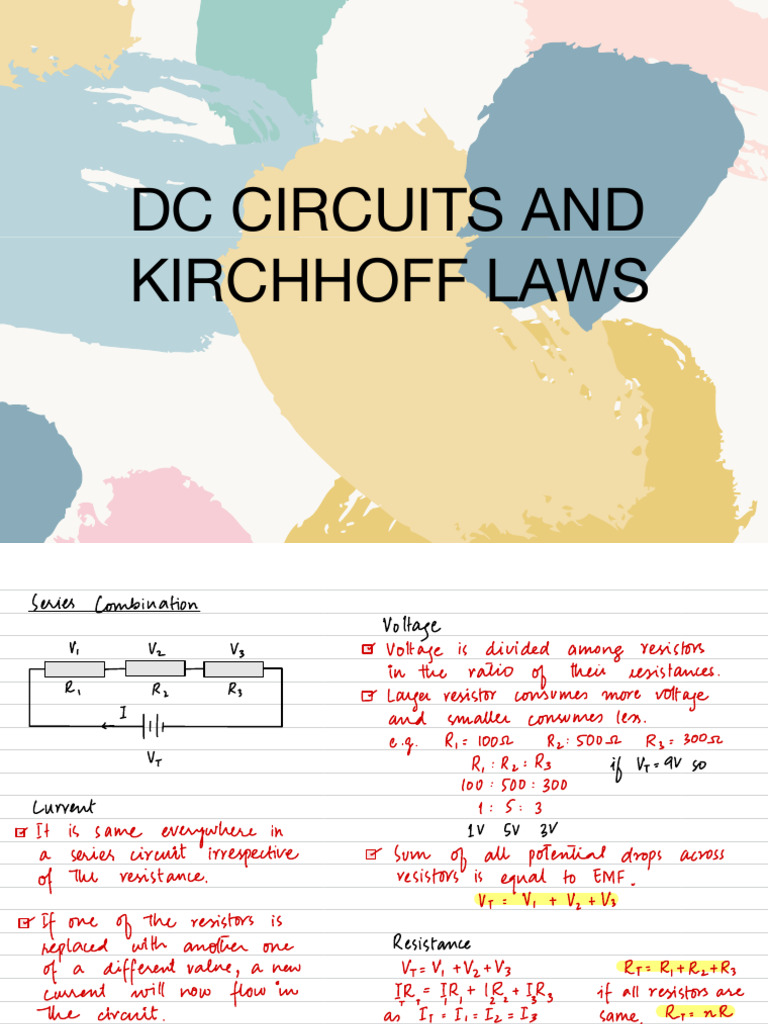 DC CIRCUITS AND
KIRCHHOFF LAWS
Series Combination
V1 V2 V3
R1 R2 R3
I
VT
Current
It is same everywhere in
a series circuit irrespective
of the resistance.
If one of the resistors is
replaced with another one
of a different value, a new
current will now flow in
the circuit.
Voltage
Voltage is divided among resistors
in the ratio of their resistances.
Larger resistor consumes more voltage
and smaller consumes less.
e.g. R1 = 100Ω R2 : 500Ω R3 = 300Ω
R1 : R2 : R3 if VT = 9V so
100 : 500 : 300
1 : 5 : 3
1V 5V 3V
Sum of all potential drops across
resistors is equal to EMF.
VT = V1 + V2 + V3
Resistance
VT = V1 + V2 + V3
ITRT = I1R1 + I2R2 + I3R3
as IT = I1 = I2 = I3
RT = R1 + R2 + R3
if all resistors are
same. RT = nR